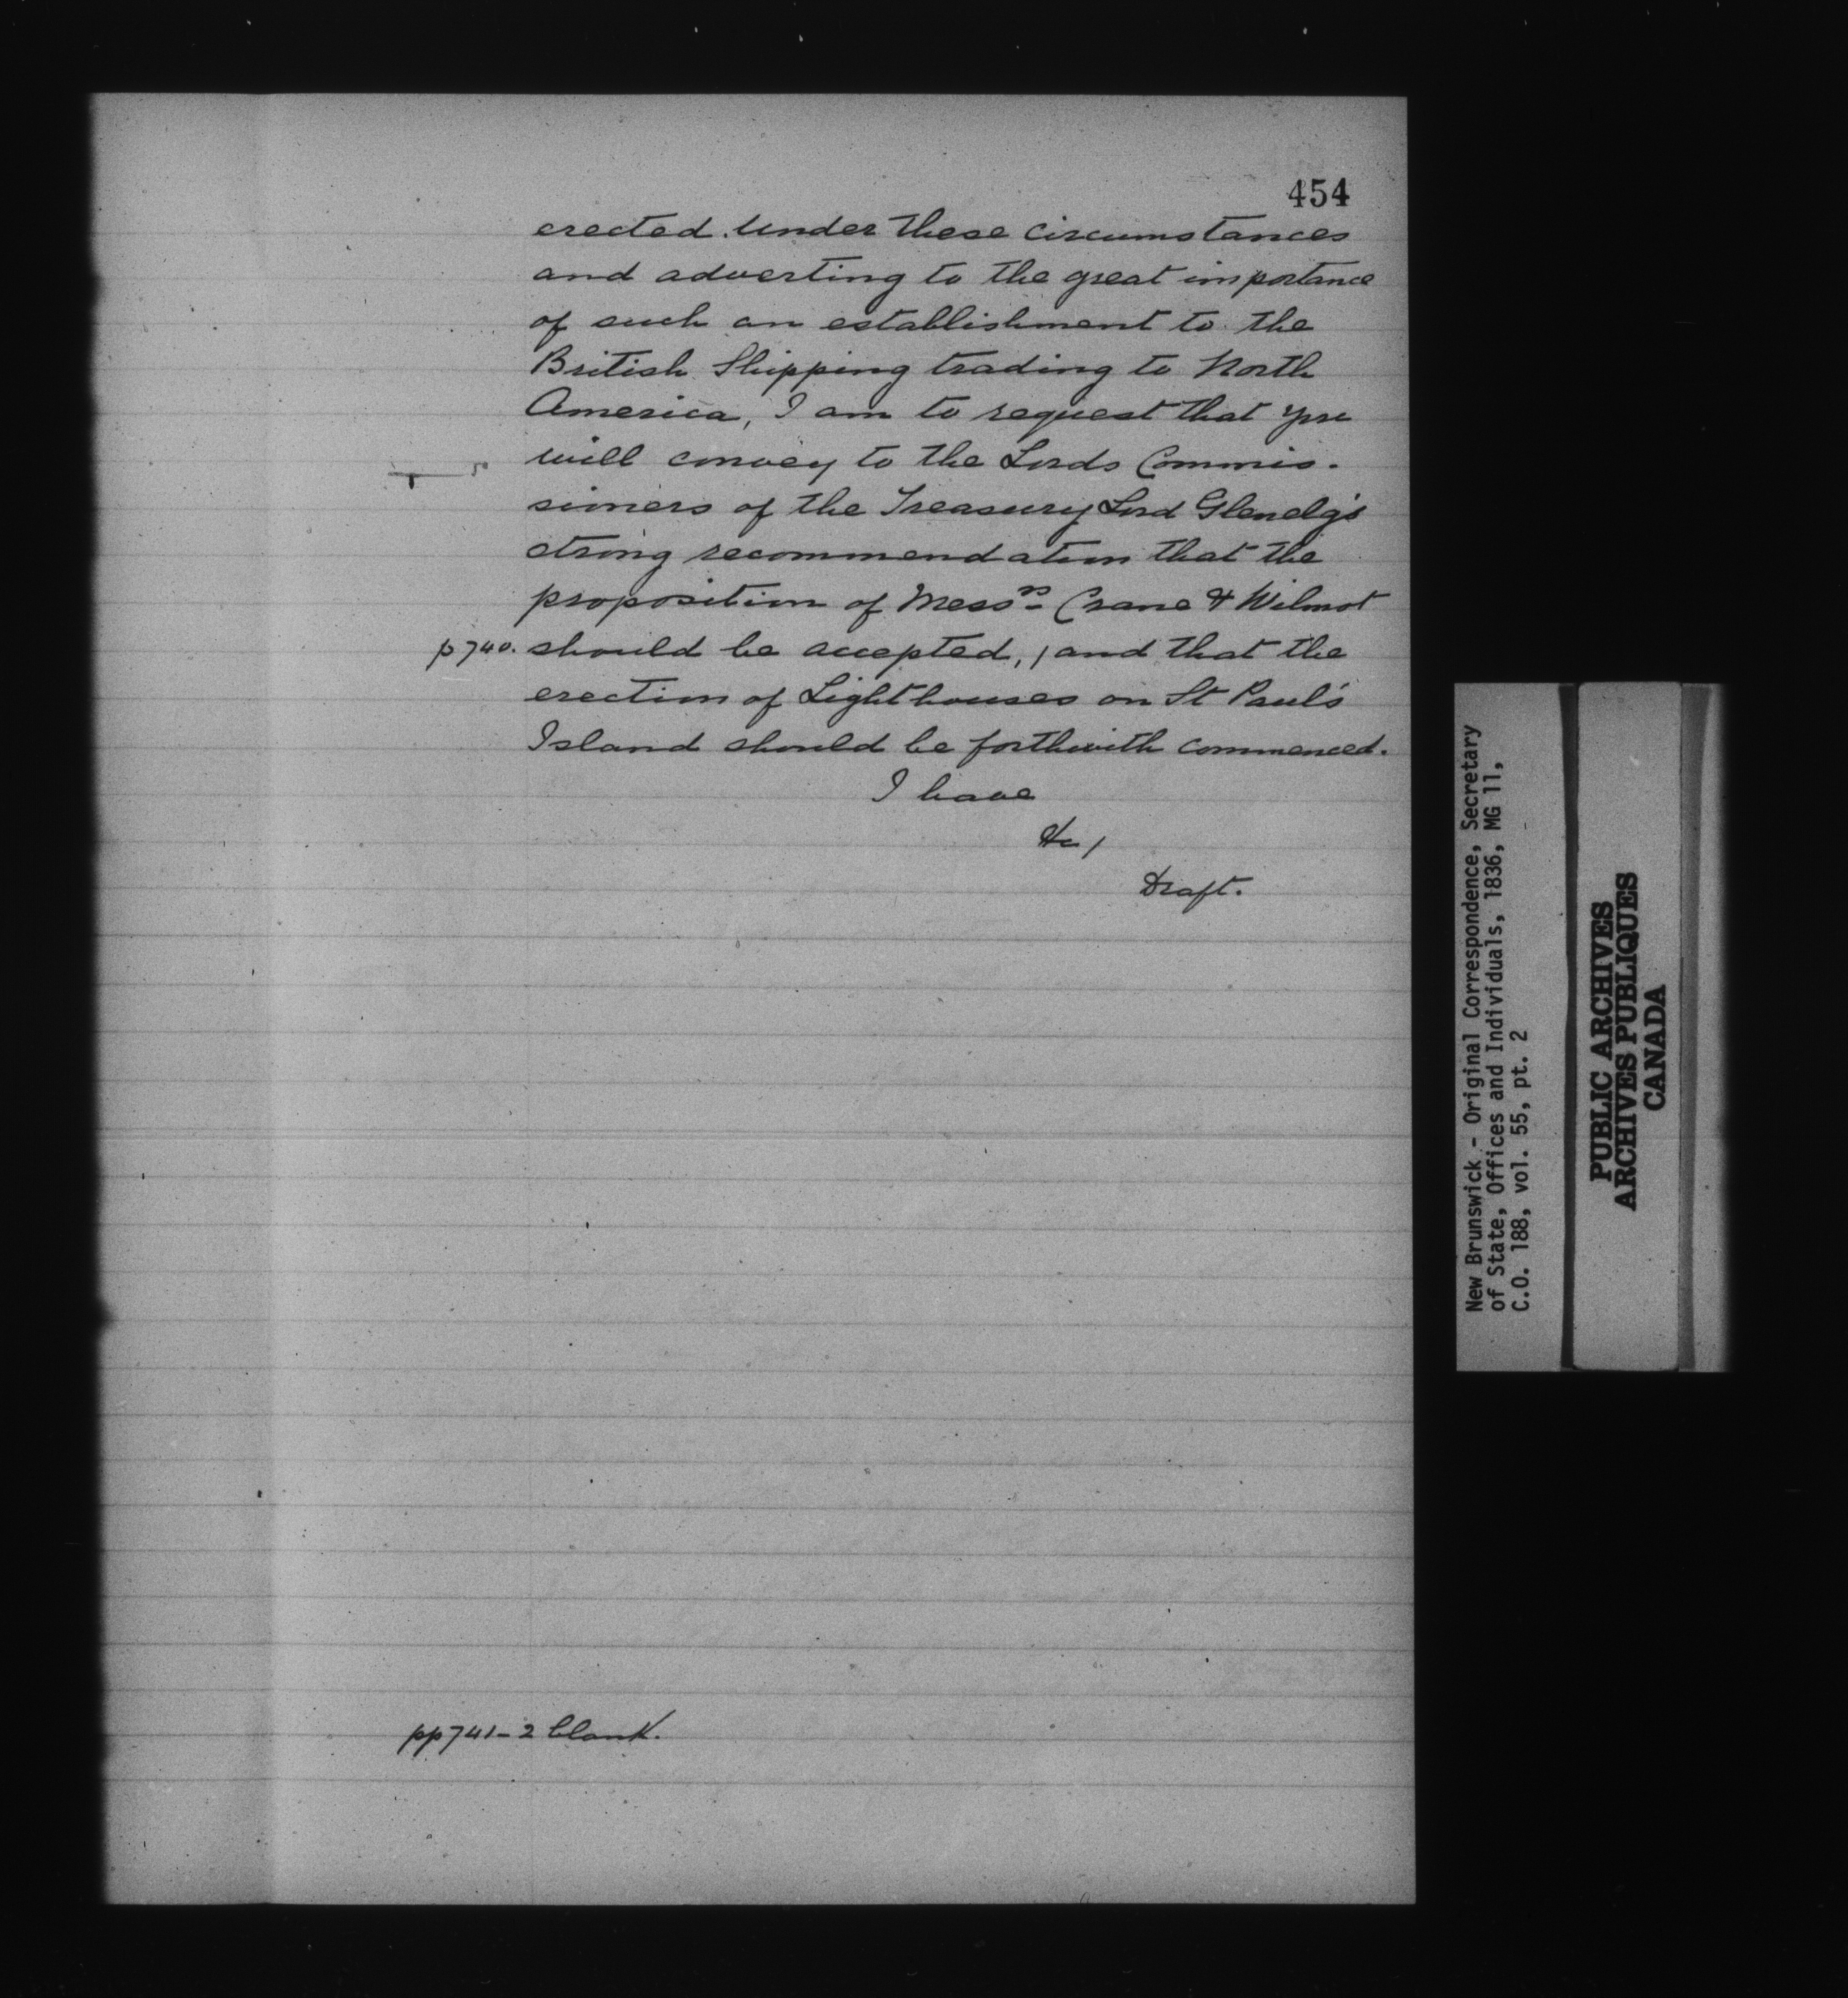 454
erected. Under these circumstances
and adverting to the great importance
of such an establishment to the
British Shipping trading to North
America, I am to request that you
will convey to the Lords Commis-
sioners of the Treasury Lord Glenelg's
strong recommendation that the
proposition of Messrs Crane & Wilmot
p 740. should be accepted, / and that the
erection of Lighthouses on St Paul's
Island should be forthwith commenced.
I have
&c /
Draft.
pp 741-2 blank.
New Brunswick - Original Correspondence, Secretary
of State, Offices and Individuals, 1836, MG 11,
C.O. 188, vol. 55, pt. 2
PUBLIC ARCHIVES
ARCHIVES PUBLIQUES
CANADA